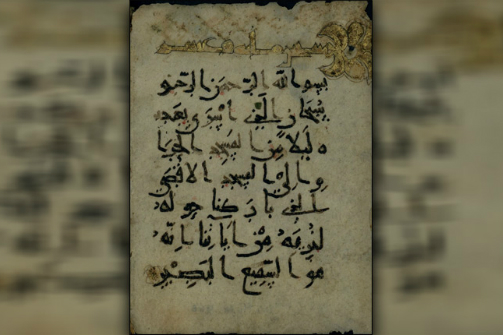 مائة وعشر
بسم الله الرحمن الرحيم
سبحان الذي اسرى بعبد
ه ليلا من المسجد الحرا
م الى المسجد الاقصى
الذي باركنا حوله
لنريه من اياتنا انه
هو السميع البصير